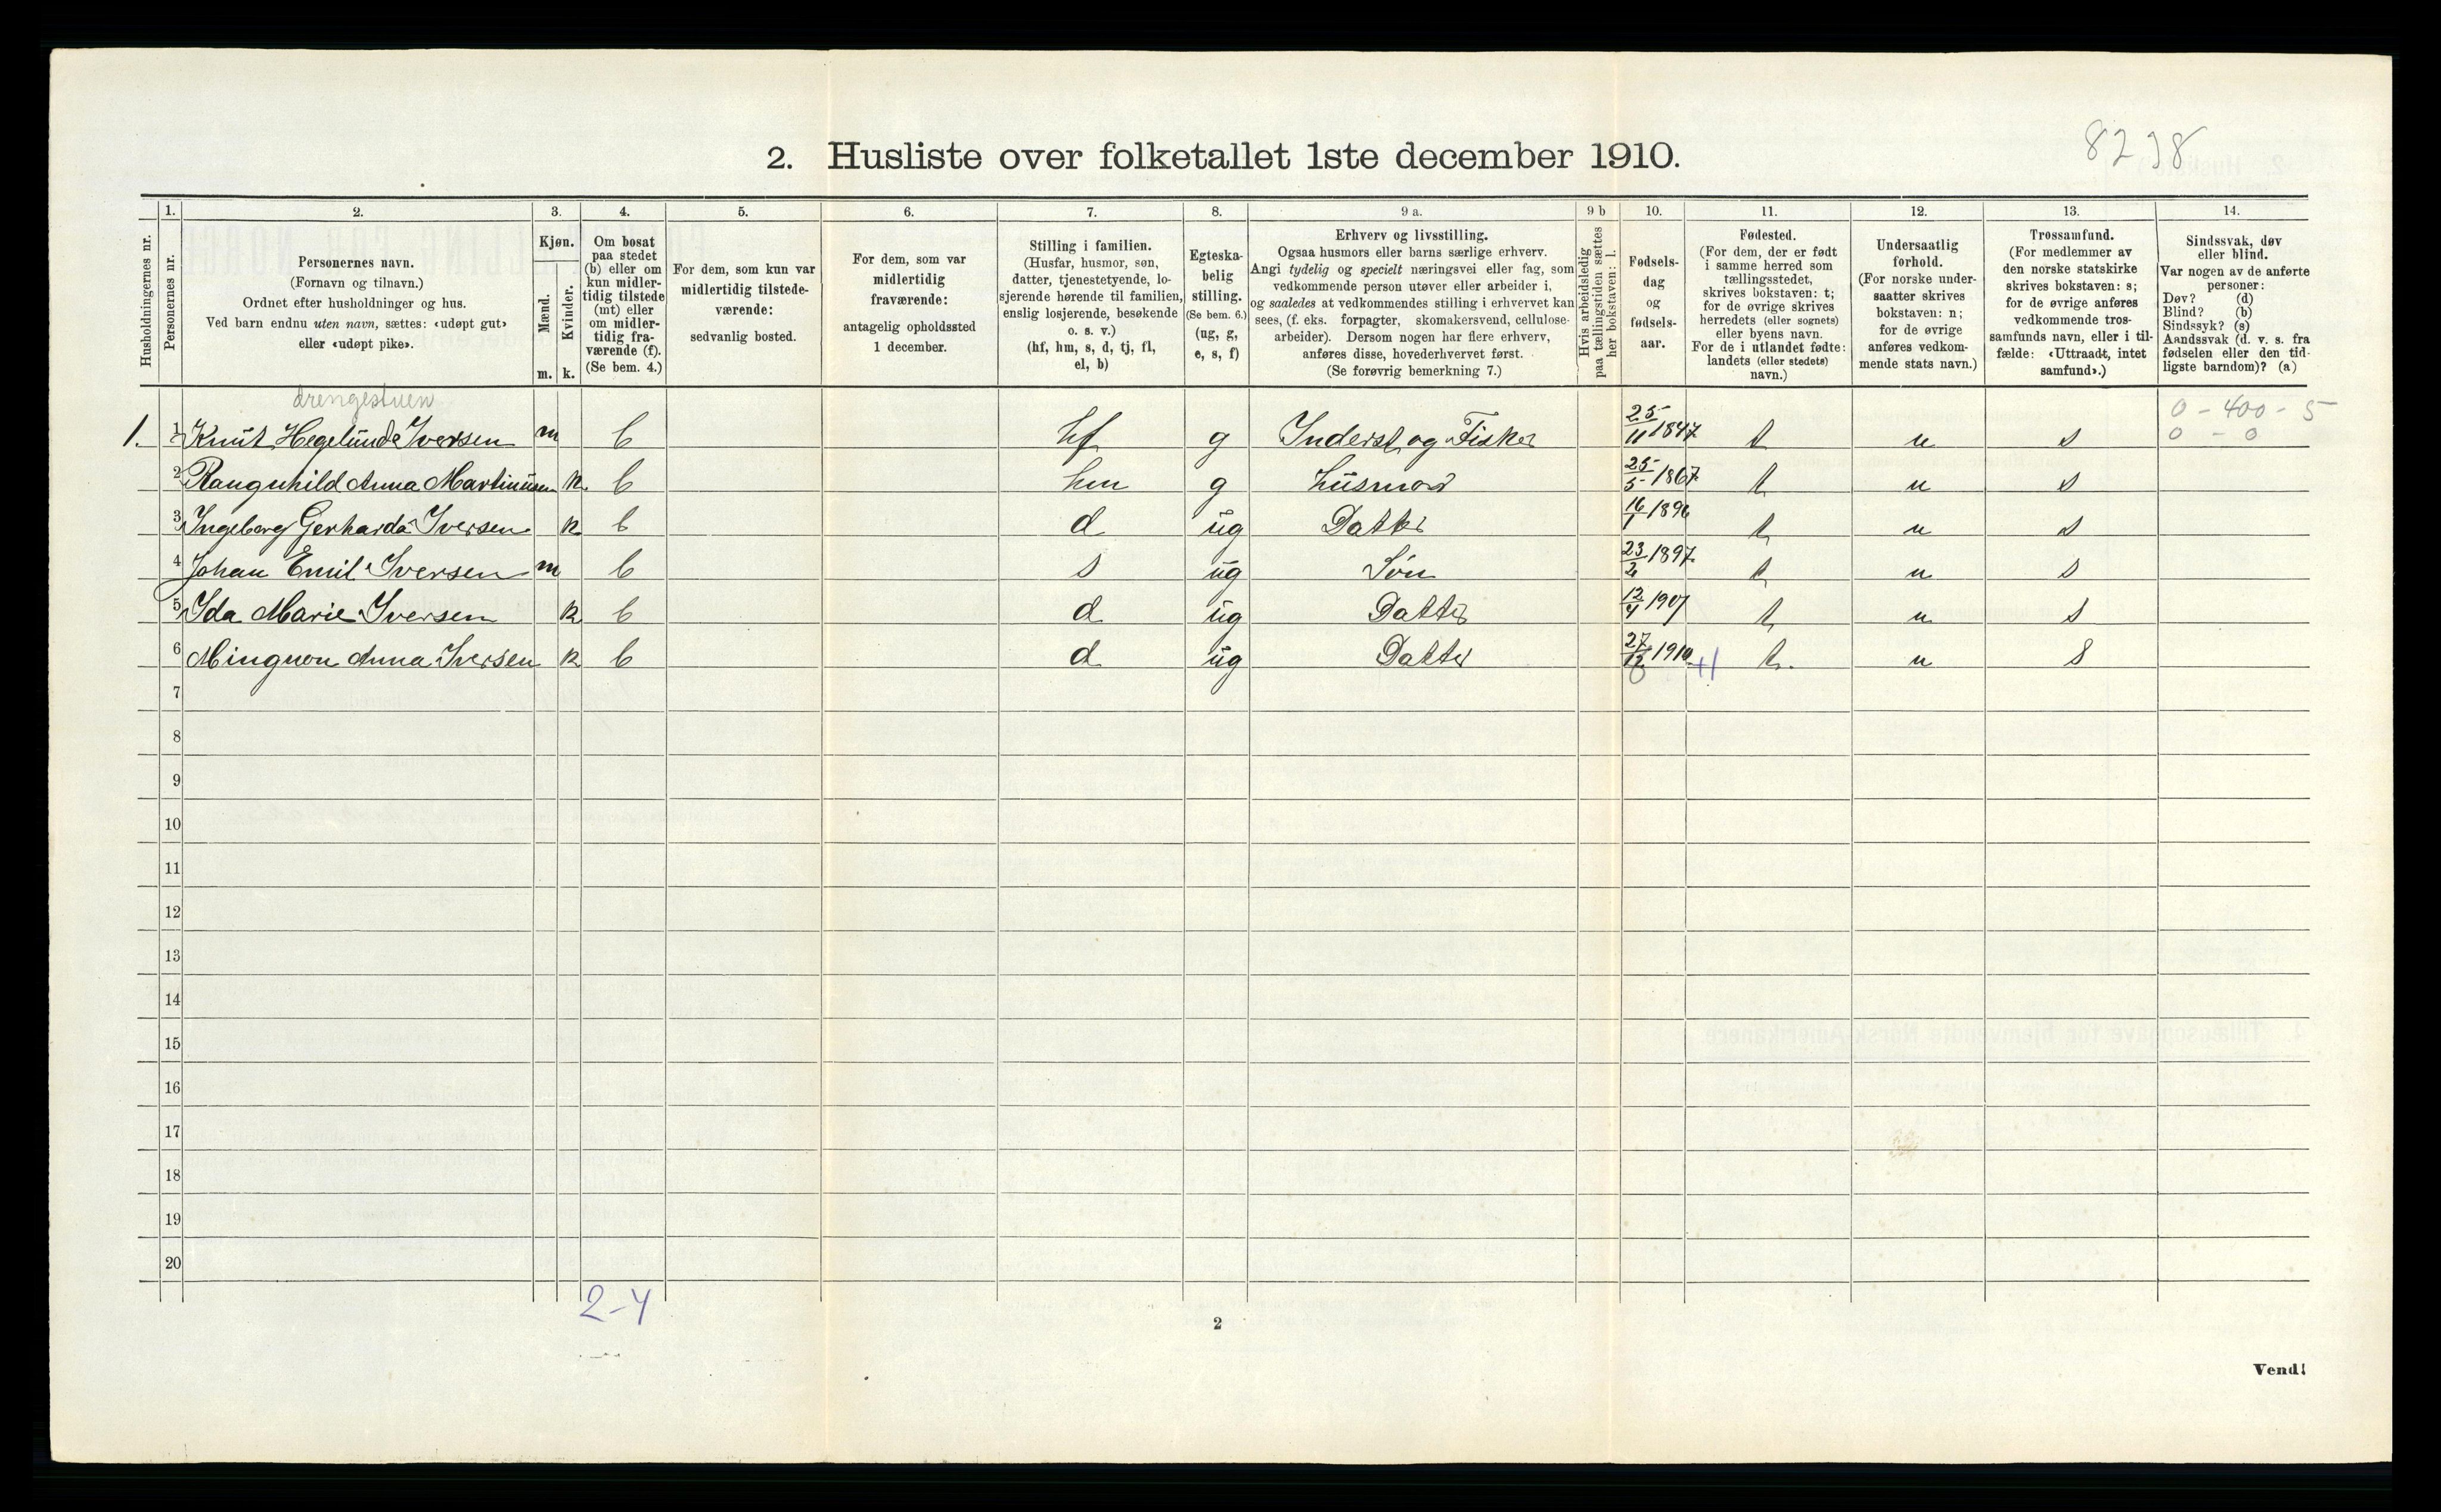 8238
2. Husliste over folketallet 1ste december 1910.
Husholdningernes nr.
1.
Personernes nr.
2.
Personernes navn.
(Fornavn og tilnavn.)
Ordnet efter husholdninger og hus.
Ved barn endnu uten navn, sættes: «udøpt gut»
eller «udøpt pike».
3.
Kjøn.
Mænd.
Kvinder.
m. k.
4.
Om bosat
paa stedet
(b) eller om
kun midler-
tidig tilstede
(mt) eller
om midler-
tidig fra-
værende (f).
(Se bem. 4.)
5.
For dem, som kun var
midlertidig tilstede-
værende:
sedvanlig bosted.
6.
For dem, som var
midlertidig
fraværende:
antagelig opholdssted
1 december.
7.
Stilling i familien.
(Husfar, husmor, søn,
datter, tjenestetyende, lo-
sjerende hørende til familien,
enslig losjerende, besøkende
o. s. v.)
(hf, hm, s, d, tj, fl,
el, b)
8.
Egteska-
belig
stilling.
(Se bem. 6.)
(ug, g,
e, s, f)
9 a.
Erhverv og livsstilling.
Ogsaa husmors eller barns særlige erhverv.
Angi tydelig og specielt næringsvei eller fag, som
vedkommende person utøver eller arbeider i,
og saaledes at vedkommendes stilling i erhvervet kan
sees, (f. eks. forpagter, skomakersvend, cellulose-
arbeider). Dersom nogen har flere erhverv,
anføres disse, hovederhvervet først.
(Se forøvrig bemerkning 7.)
9 b
Hvis arbeidsledig
paa tællingstiden sættes
her bokstaven: l.
10.
Fødsels-
dag
og
fødsels-
aar.
11.
Fødested.
(For dem, der er født
i samme herred som
tællingsstedet,
skrives bokstaven: t;
for de øvrige skrives
herredets (eller sognets)
eller byens navn.
For de i utlandet fødte:
landets (eller stedets)
navn.)
12.
Undersaatlig
forhold.
(For norske under-
saatter skrives
bokstaven: n;
for de øvrige
anføres vedkom-
mende stats navn.)
13.
Trossamfund.
(For medlemmer av
den norske statskirke
skrives bokstaven: s;
for de øvrige anføres
vedkommende tros-
samfunds navn, eller i til-
fælde: «Uttraadt, intet
samfund».)
14.
Sindssvak, døv
eller blind.
Var nogen av de anførte
personer:
Døv? (d)
Blind? (b)
Sindssyk? (s)
Aandssvak (d. v. s. fra
fødselen eller den tid-
ligste barndom)? (a)
drengestuen
0 - 400 - 5
0 - 0
1. 1 Knut Hegelund Iversen m b hf g Inderst og Fisker 25/11 1847 t n s
2 Rangnhild Anna Martinusen k. b hm g Husmor 25/5 1867 t n s
3 Ingeborg Gerharda Iversen k b d ug Datter 16/1 1896 t n s
4 Johan Emil Iversen m b s ug Søn 23/2 1897 t n s
5 Ida Marie Iversen k b d ug Datter 12/4 1901 t n s
6 Mingnon Anna Iversen k b d ug Datter 27/12 1910 +1 t. n s
7
8
9
10
11
12
13
14
15
16
17
18
19
20
2-4
2
Vend!